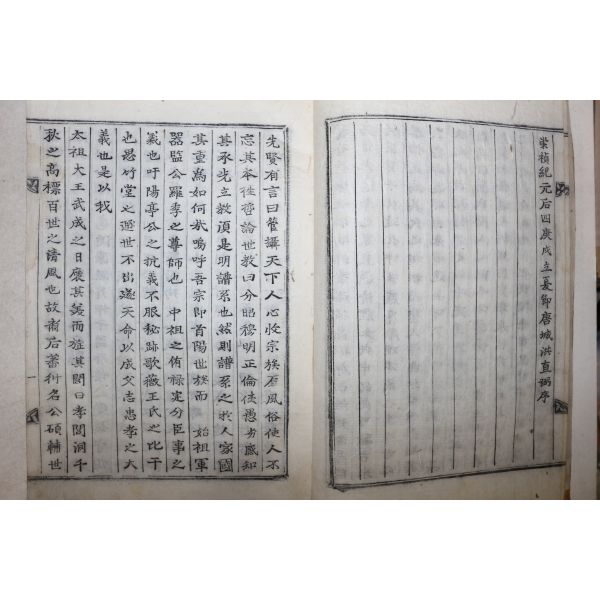 崇禎紀元后四庚戌立夏節唐城洪直弼序
先賢有言曰管攝天下人心收宗族厚風俗使人不
忘其本徃哲論世教曰分昭穆明正倫使愚劣咸知
其承先立教須是明譜系也然則譜系之扵人家國
其重為如何哉嗚呼吾宗即首陽世族而 始祖軍
器監公羅季之尊師也 中祖之侑祿定分臣事之
義也吁陽亭公之抗義不服秘跡歌薇王氏之比干
也愚竹堂之遯世不出遂天命以成父志忠孝之大
義也是以我
太祖大王武成之日襃其義而旌其閭曰孝閭洞千
秋之高標百世之清風也故裔后蕃衍名公碩輔世